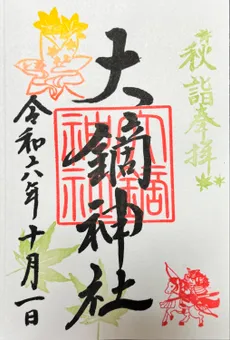 秋詣奉拝
大鏑神社
令和六年十月一日